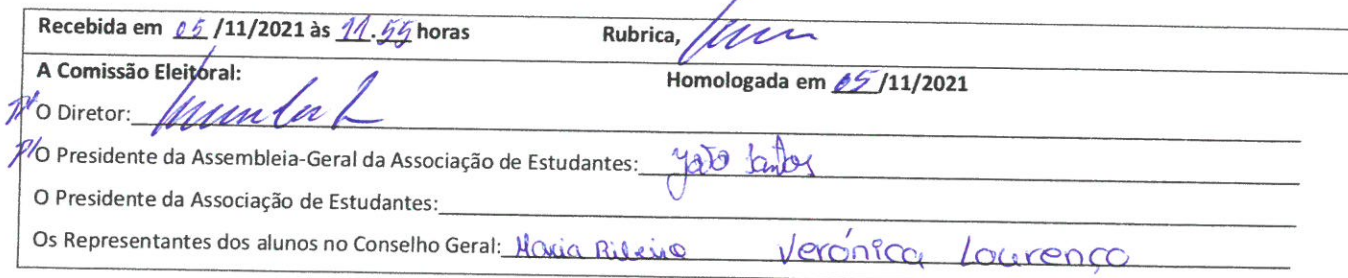 Recebida em 05/11/2021 às 11.55 horas Rubrica,
A Comissão Eleitoral: Homologada em 05/11/2021
P/ O Diretor:
P/ O Presidente da Assembleia-Geral da Associação de Estudantes: João Santos
O Presidente da Associação de Estudantes:
Os Representantes dos alunos no Conselho Geral: Maria Ribeiro Verónica Lourenço